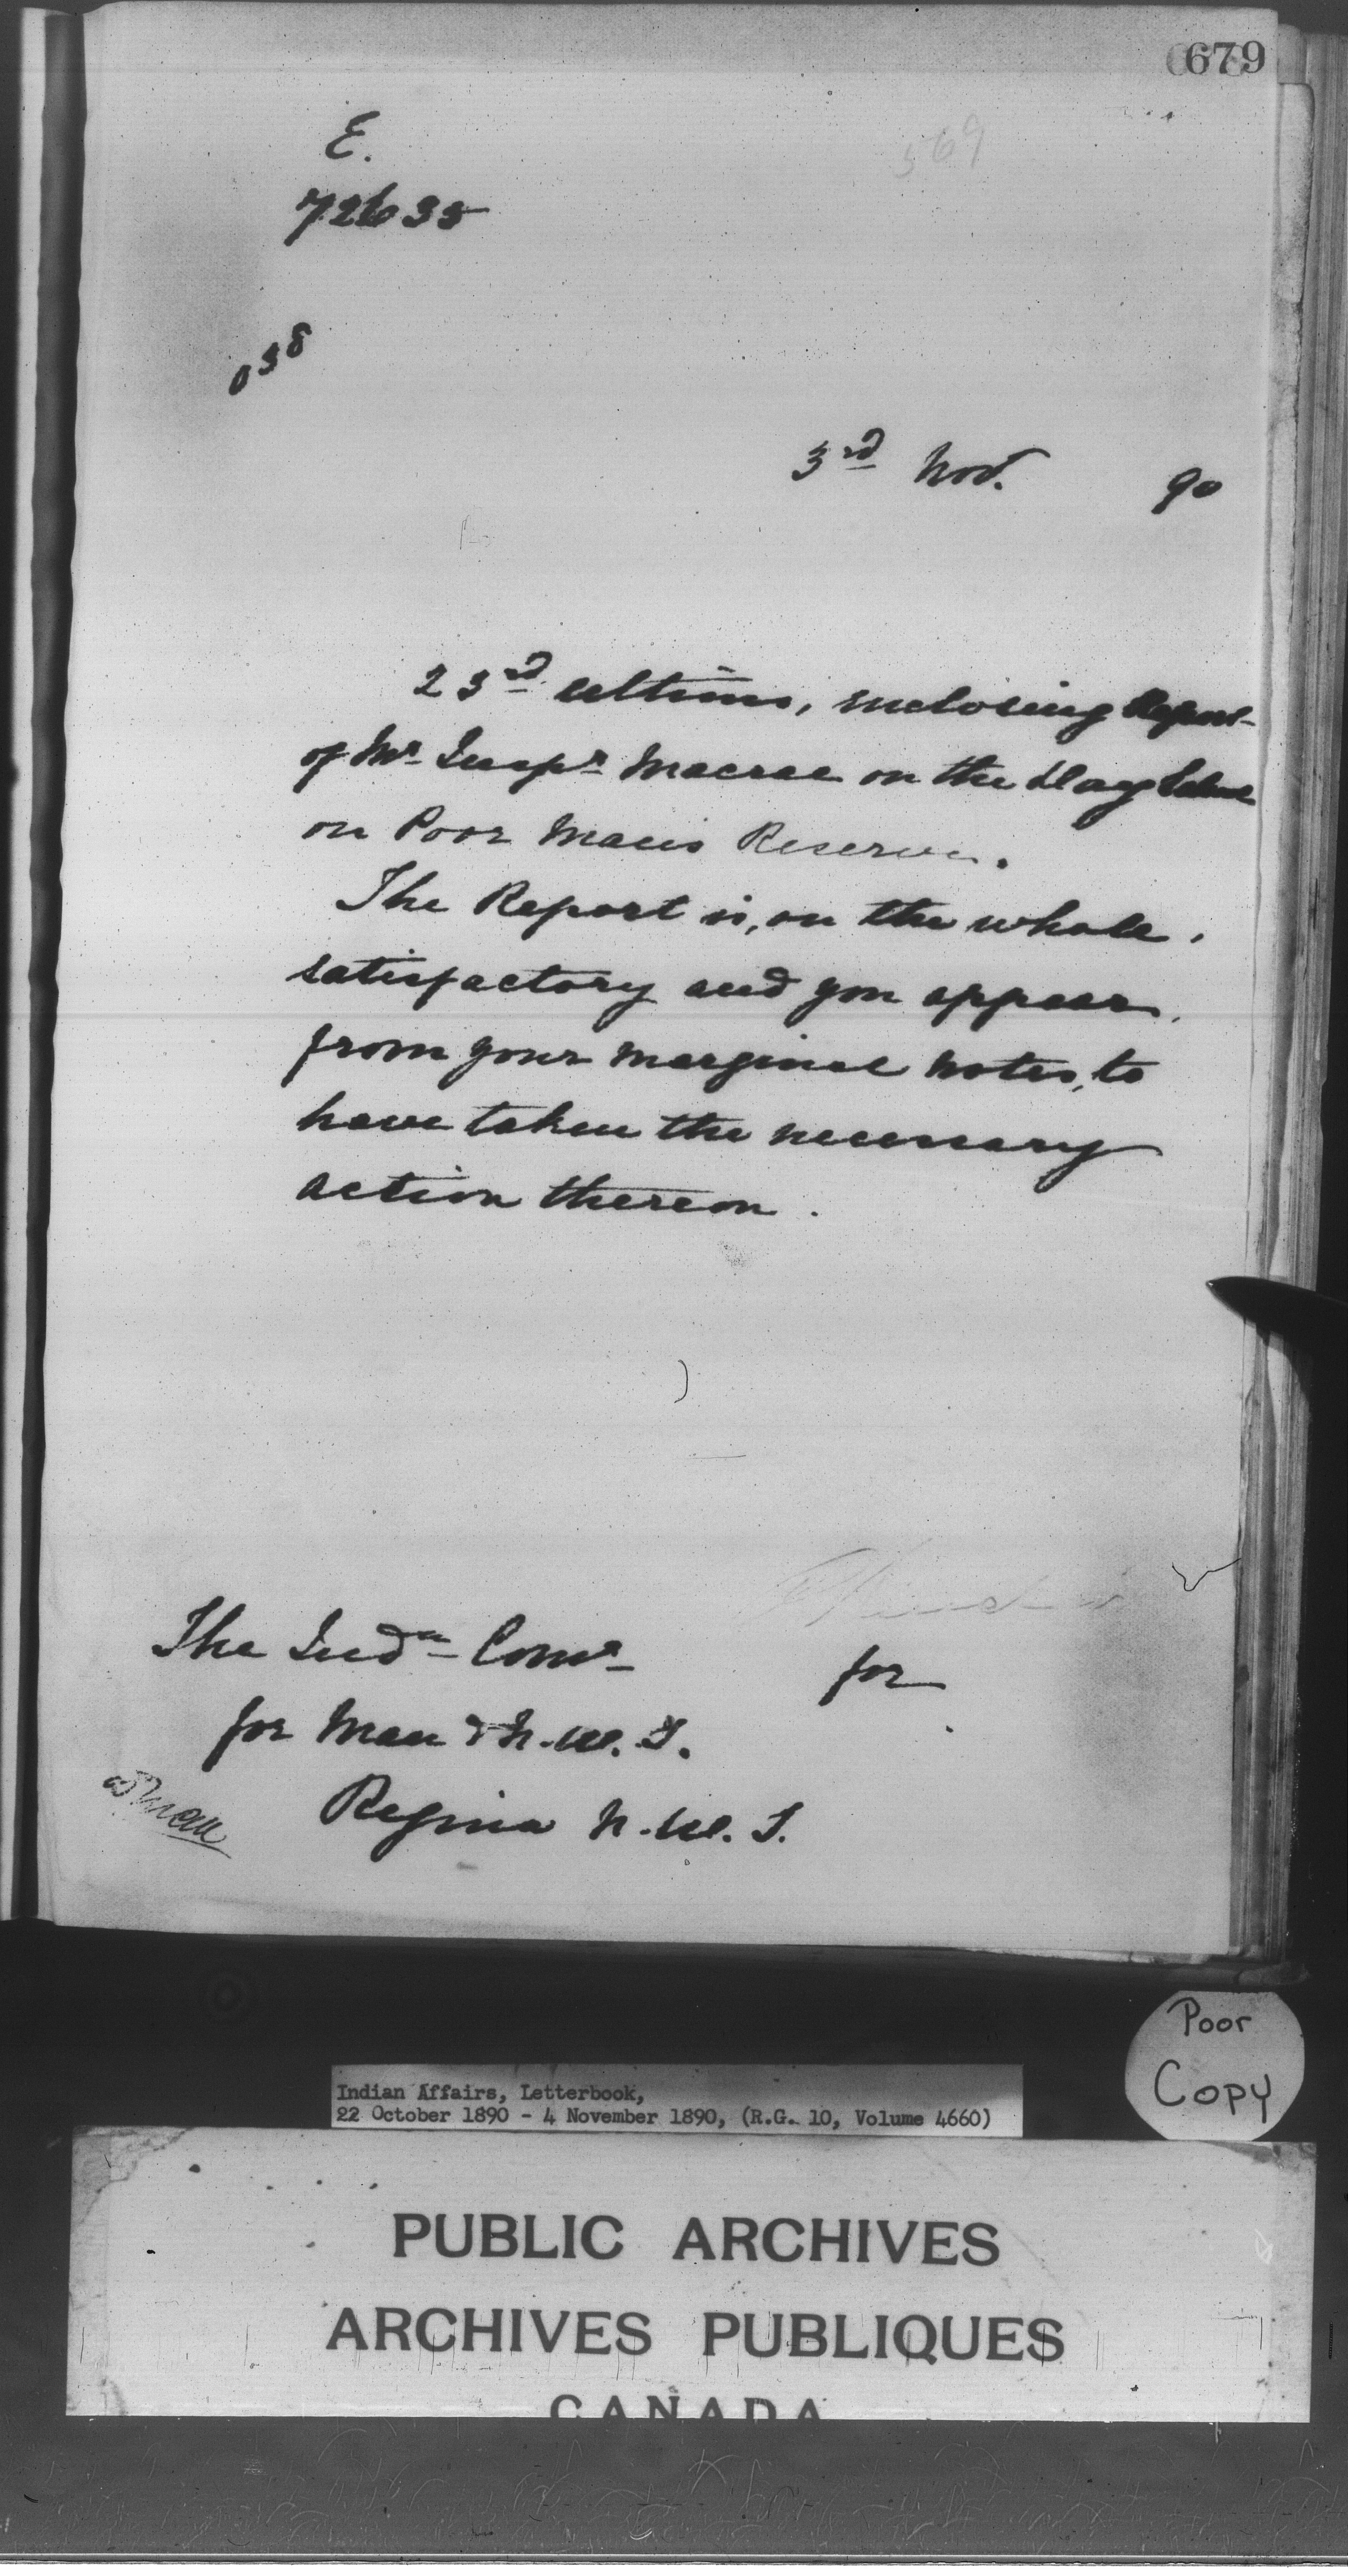 679
569
E.
72635
038
3rd Nov. 90
23rd ultimo, enclosing Report
of Mr Inspr Macrae on the Day School
on Poor Man's Reserve.
The Report is, on the whole,
satisfactory and you appear,
from your marginal notes, to
have taken the necessary
action thereon.
for
The Indn Comr
for Man & N.W.T.
Regina N.W.T.
Poor
Copy
Indian Affairs, Letterbook,
22 October 1890 - 4 November 1890, (R.G. 10, Volume 4660)
PUBLIC ARCHIVES
ARCHIVES PUBLIQUES
CANADA